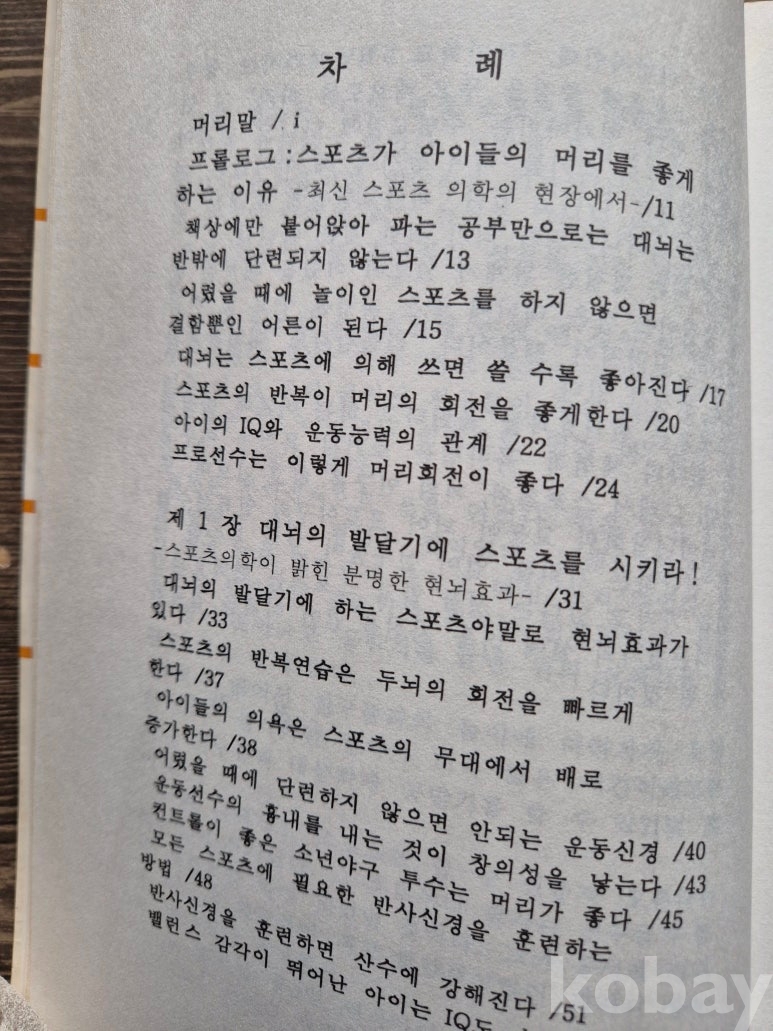 차 례
머리말 / i
프롤로그 : 스포츠가 아이들의 머리를 좋게
하는 이유 -최신 스포츠 의학의 현장에서-/11
책상에만 붙어앉아 파는 공부만으로는 대뇌는
반밖에 단련되지 않는다 /13
어렸을 때에 놀이인 스포츠를 하지 않으면
결함뿐인 어른이 된다 /15
대뇌는 스포츠에 의해 쓰면 쓸 수록 좋아진다 /17
스포츠의 반복이 머리의 회전을 좋게한다 /20
아이의 IQ와 운동능력의 관계 /22
프로선수는 이렇게 머리회전이 좋다 /24
제 1 장 대뇌의 발달기에 스포츠를 시키라!
-스포츠의학이 밝힌 분명한 현뇌효과- /31
대뇌의 발달기에 하는 스포츠야말로 현뇌효과가
있다 /33
스포츠의 반복연습은 두뇌의 회전을 빠르게
한다 /37
아이들의 의욕은 스포츠의 무대에서 배로
증가한다 /38
어렸을 때에 단련하지 않으면 안되는 운동신경 /40
운동선수의 흉내를 내는 것이 창의성을 낳는다 /43
컨트롤이 좋은 소년야구 투수는 머리가 좋다 /45
모든 스포츠에 필요한 반사신경을 훈련하는
방법 /48
반사신경을 훈련하면 산수에 강해진다 /51
밸런스 감각이 뛰어난 아이는 IQ도
kobay